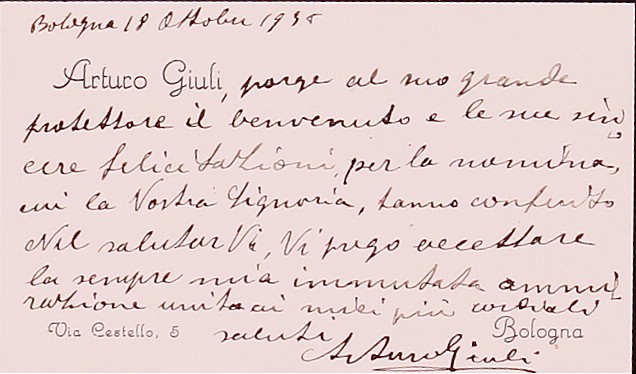 Bologna 18 Ottobre 1935
Arturo Giuli, porge al suo grande
protettore il benvenuto e le sue sin
cere felicitazioni, per la nomina,
cui la Vostra Signoria, hanno conferito
Nel salutar Vi, Vi prego accettare
la sempre mia immutata ammi
razione unita ai miei più cordiali
saluti
Via Cestello, 5 Bologna
Arturo Giuli